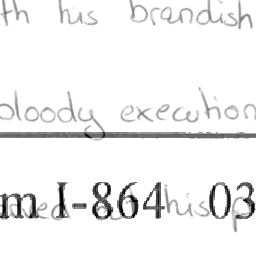 th his brandish
bloody execution
m I-864 03
his